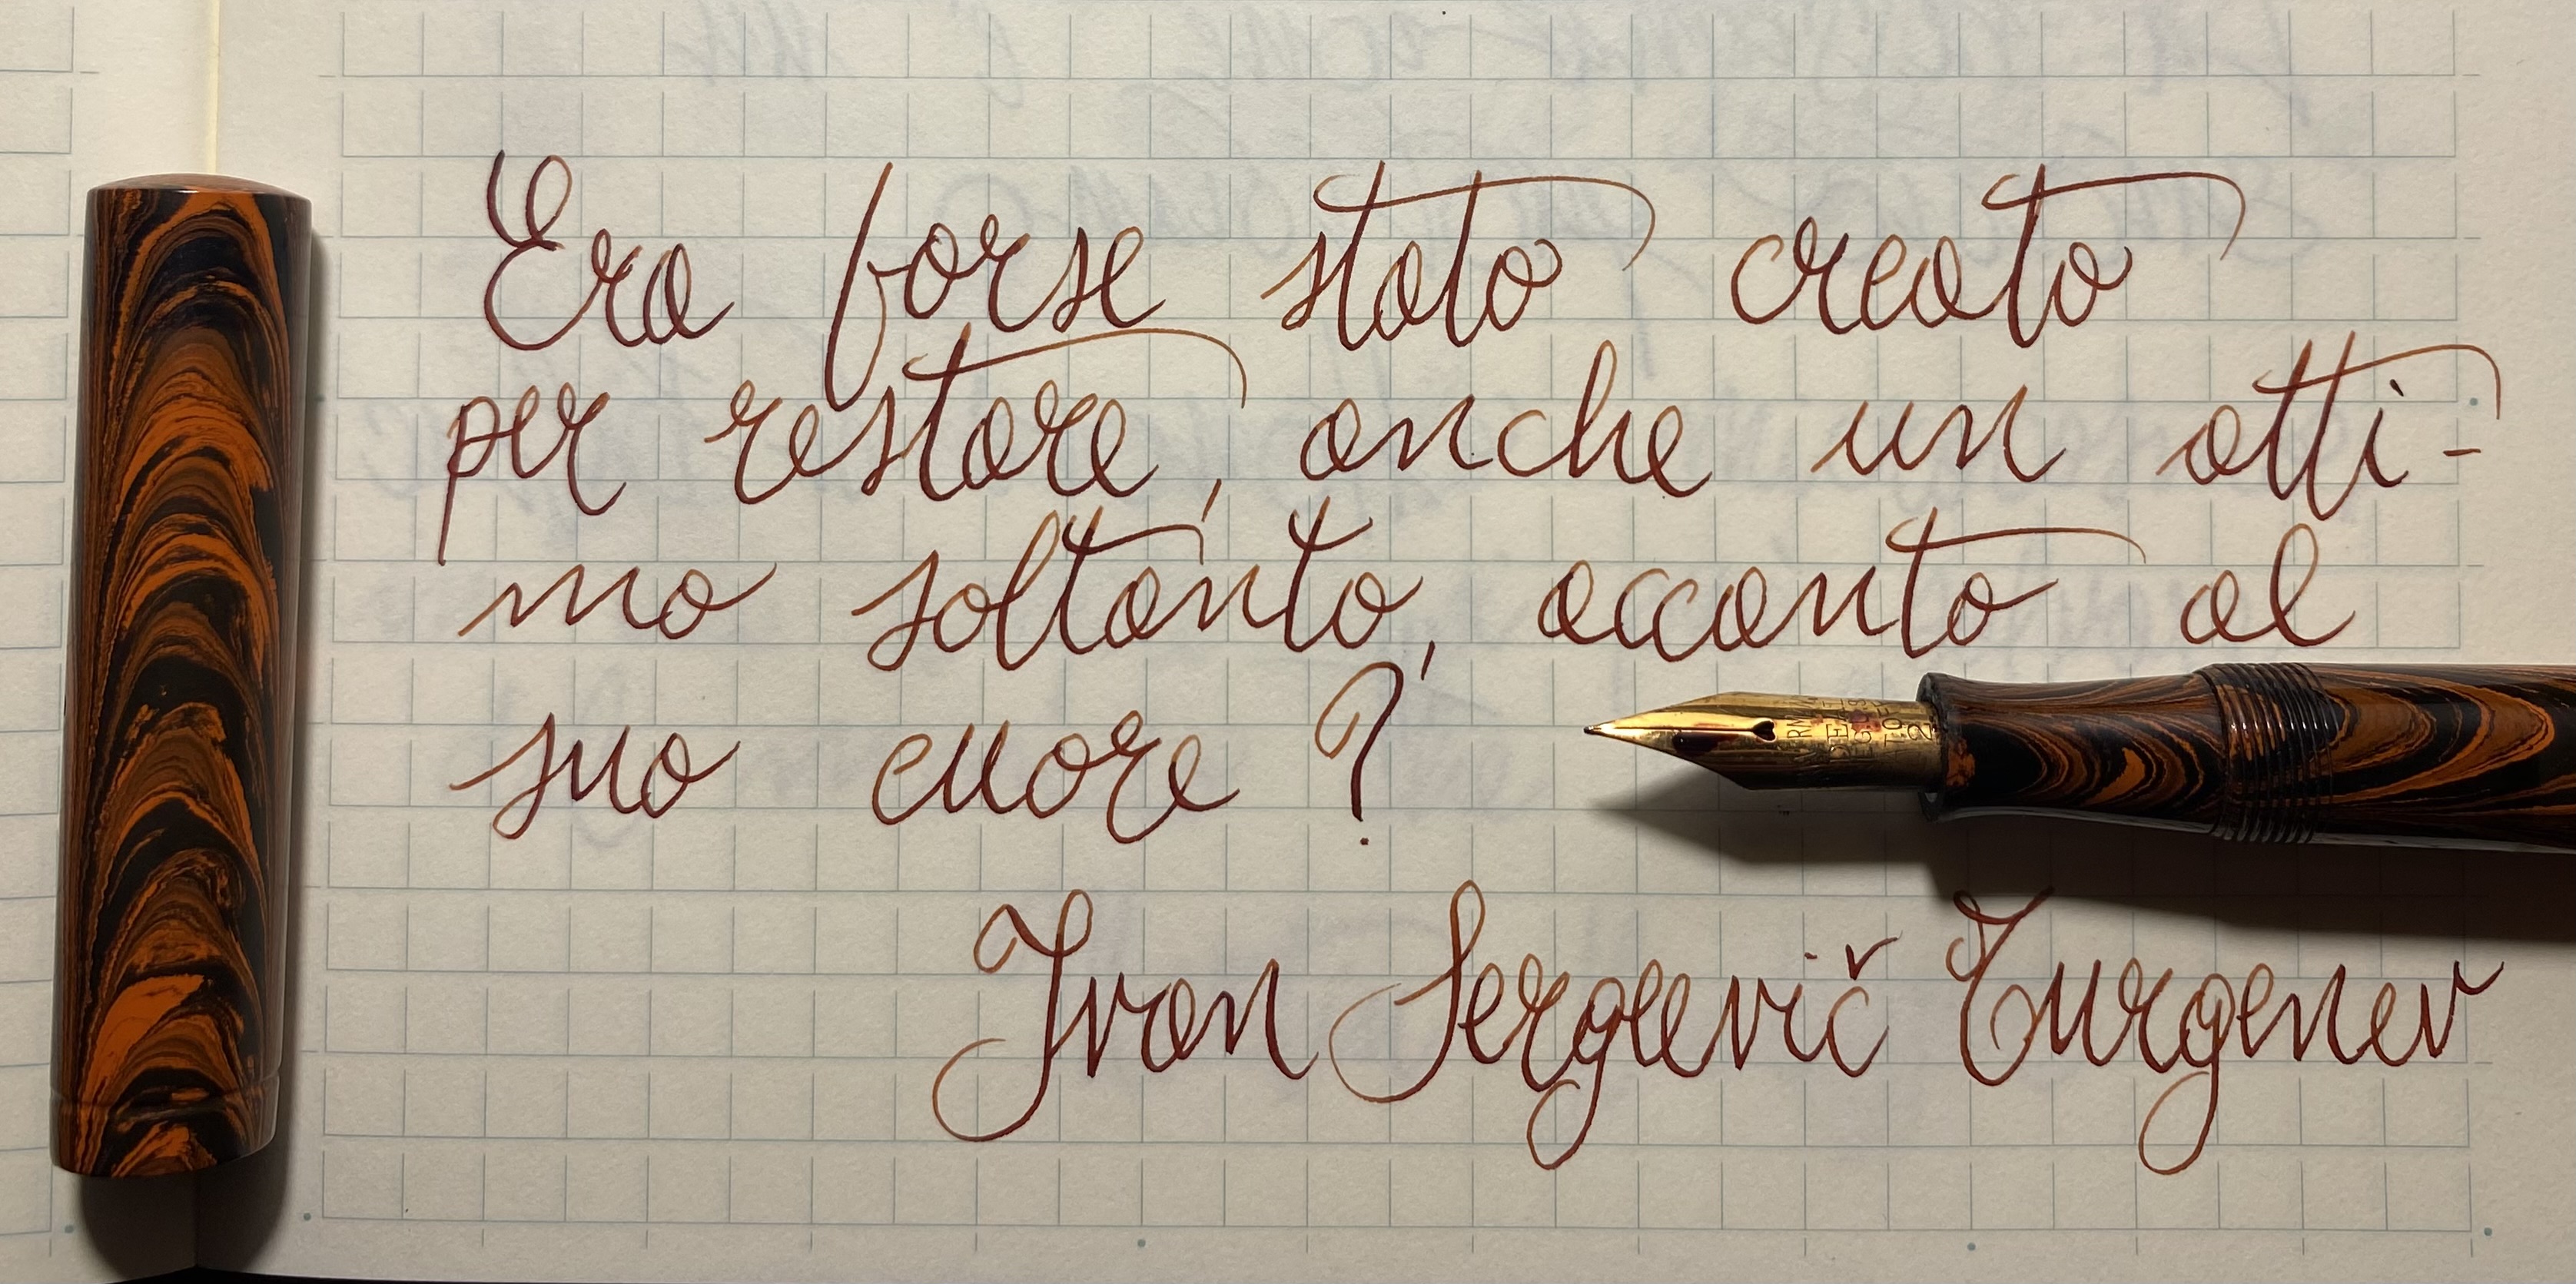 Era forse stato creato
per restare, anche un atti-
mo soltanto, accanto al
suo cuore?
Ivan Sergeevič Turgenev